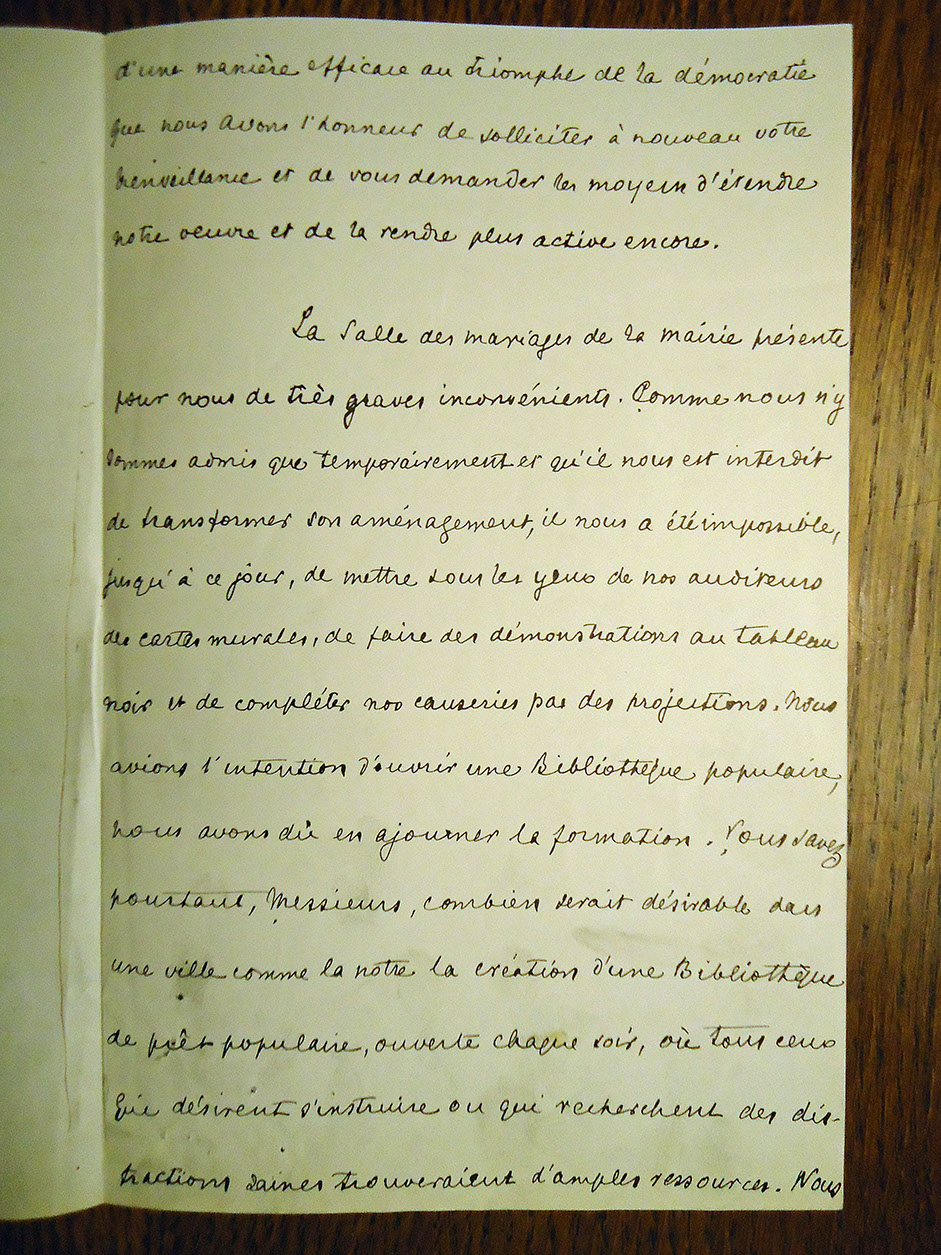 d'une manière efficace au triomphe de la démocratie
que nous avons l'honneur de solliciter à nouveau votre
bienveillance et de vous demander les moyens d'étendre
notre oeuvre et de la rendre plus active encore.
La Salle des mariages de la mairie présente
pour nous de très graves inconvénients. Comme nous n'y
sommes admis que temporairement et qu'il nous est interdit
de transformer son aménagement, il nous a été impossible,
jusqu'à ce jour, de mettre sous les yeux de nos auditeurs
des cartes murales, de faire des démonstrations au tableau
noir et de compléter nos causeries par des projections. Nous
avions l'intention d'ouvrir une Bibliothèque populaire,
nous avons dû en ajourner la formation. Vous savez
pourtant, Messieurs, combien serait désirable dans
une ville comme la nôtre la création d'une Bibliothèque
de prêt populaire, ouverte chaque soir, où tous ceux
qui désirent s'instruire ou qui recherchent des dis-
tractions saines trouveraient d'amples ressources. Nous